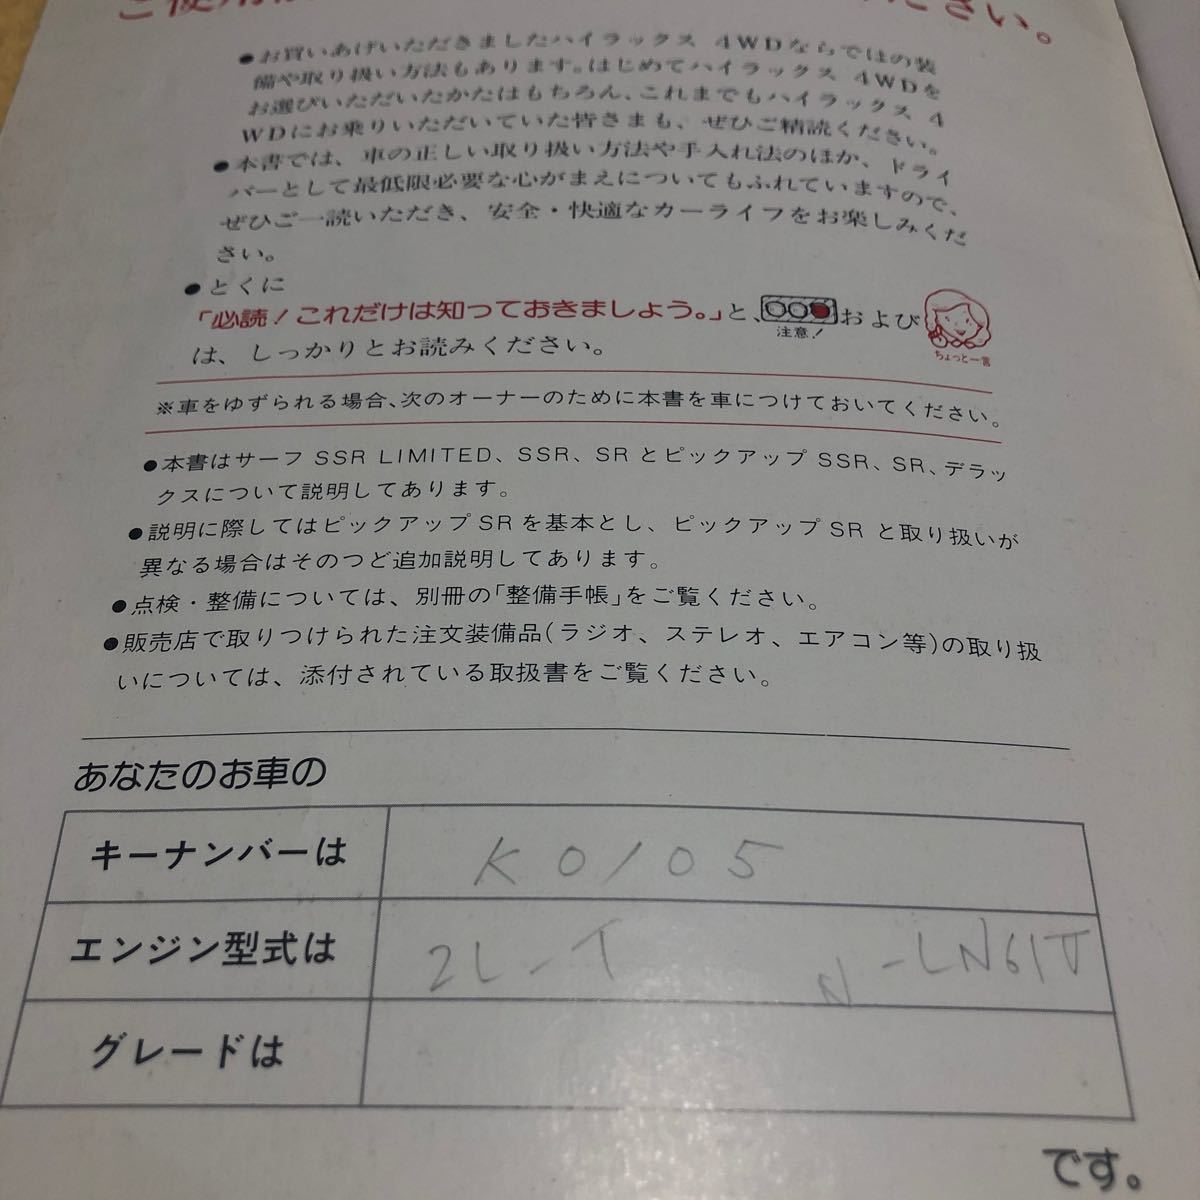 ください。
●お買いあげいただきましたハイラックス 4WDならではの装
備や取り扱い方法もあります。はじめてハイラックス 4WDを
お選びいただいたかたはもちろん、これまでもハイラックス 4
WDにお乗りいただいていた皆さまも、ぜひご精読ください。
●本書では、車の正しい取り扱い方法や手入れ法のほか、ドライ
バーとして最低限必要な心がまえについてもふれていますので、
ぜひご一読いただき、安全・快適なカーライフをお楽しみくだ
さい。
●とくに
「必読！これだけは知っておきましょう。」と、および
注意！
ちょっと一言
は、しっかりとお読みください。
※車をゆずられる場合、次のオーナーのために本書を車につけておいてください。
●本書はサーフ SSR LIMITED、SSR、SRとピックアップ SSR、SR、デラッ
クスについて説明してあります。
●説明に際してはピックアップ SR を基本とし、ピックアップ SR と取り扱いが
異なる場合はそのつど追加説明してあります。
●点検・整備については、別冊の「整備手帳」をご覧ください。
●販売店で取りつけられた注文装備品(ラジオ、ステレオ、エアコン等)の取り扱
いについては、添付されている取扱書をご覧ください。
あなたのお車の
キーナンバーは K0105
エンジン型式は 2L-T N-LN61V
グレードは
です。